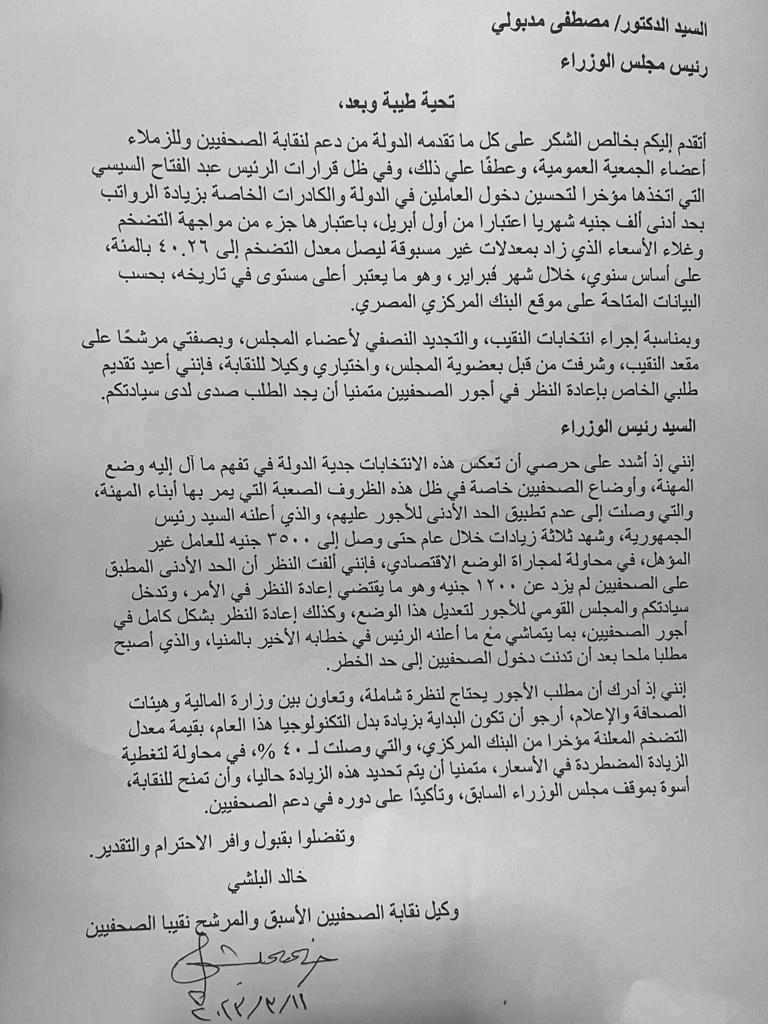 السيد الدكتور/ مصطفى مدبولي
رئيس مجلس الوزراء
تحية طيبة وبعد،
أتقدم إليكم بخالص الشكر على كل ما تقدمه الدولة من دعم لنقابة الصحفيين وللزملاء
أعضاء الجمعية العمومية، وعطفًا علي ذلك، وفي ظل قرارات الرئيس عبد الفتاح السيسي
التي اتخذها مؤخرا لتحسين دخول العاملين في الدولة والكادرات الخاصة بزيادة الرواتب
بحد أدنى ألف جنيه شهريا اعتبارا من أول أبريل، باعتبارها جزء من مواجهة التضخم
وغلاء الأسعار الذي زاد بمعدلات غير مسبوقة ليصل معدل التضخم إلى ٤٠.٢٦ بالمئة،
على أساس سنوي، خلال شهر فبراير، وهو ما يعتبر أعلى مستوى في تاريخه، بحسب
البيانات المتاحة على موقع البنك المركزي المصري.
وبمناسبة إجراء انتخابات النقيب، والتجديد النصفي لأعضاء المجلس، وبصفتي مرشحًا على
مقعد النقيب، وشرفت من قبل بعضوية المجلس، واختياري وكيلا للنقابة، فإنني أعيد تقديم
طلبي الخاص بإعادة النظر في أجور الصحفيين متمنيا أن يجد الطلب صدى لدى سيادتكم.
السيد رئيس الوزراء
إنني إذ أشدد على حرصي أن تعكس هذه الانتخابات جدية الدولة في تفهم ما آل إليه وضع
المهنة، وأوضاع الصحفيين خاصة في ظل هذه الظروف الصعبة التي يمر بها أبناء المهنة،
والتي وصلت إلى عدم تطبيق الحد الأدنى للأجور عليهم، والذي أعلنه السيد رئيس
الجمهورية، وشهد ثلاثة زيادات خلال عام حتى وصل إلى ٣٥٠٠ جنيه للعامل غير
المؤهل، في محاولة لمجاراة الوضع الاقتصادي، فإنني ألفت النظر أن الحد الأدنى المطبق
على الصحفيين لم يزد عن ١٢٠٠ جنيه وهو ما يقتضي إعادة النظر في الأمر، وتدخل
سيادتكم والمجلس القومي للأجور لتعديل هذا الوضع، وكذلك إعادة النظر بشكل كامل في
أجور الصحفيين، بما يتماشي مع ما أعلنه الرئيس في خطابه الأخير بالمنيا، والذي أصبح
مطلبا ملحا بعد أن تدنت دخول الصحفيين إلى حد الخطر.
إنني إذ أدرك أن مطلب الأجور يحتاج لنظرة شاملة، وتعاون بين وزارة المالية وهيئات
الصحافة والإعلام، أرجو أن تكون البداية بزيادة بدل التكنولوجيا هذا العام، بقيمة معدل
التضخم المعلنة مؤخرا من البنك المركزي، والتي وصلت لـ ٤٠ %، في محاولة لتغطية
الزيادة المضطردة في الأسعار، متمنيا أن يتم تحديد هذه الزيادة حاليا، وأن تمنح للنقابة،
أسوة بموقف مجلس الوزراء السابق، وتأكيدًا على دوره في دعم الصحفيين.
وتفضلوا بقبول وافر الاحترام والتقدير.
خالد البلشي
وكيل نقابة الصحفيين الأسبق والمرشح نقيبا الصحفيين
٢٠٢٣/٣/١١